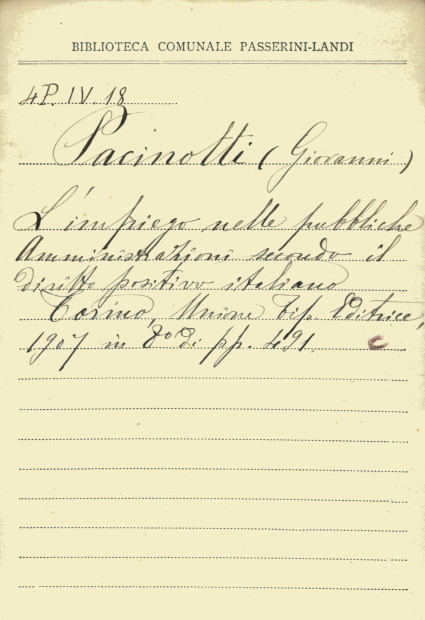 BIBLIOTECA COMUNALE PASSERINI-LANDI
4P. IV. 18
Pacinotti (Giovanni)
L'impiego nelle pubbliche
Amministrazioni secondo il
diritto positivo italiano
Torino, Unione Tip. Editrice,
1907 in 8° di pp. 491.